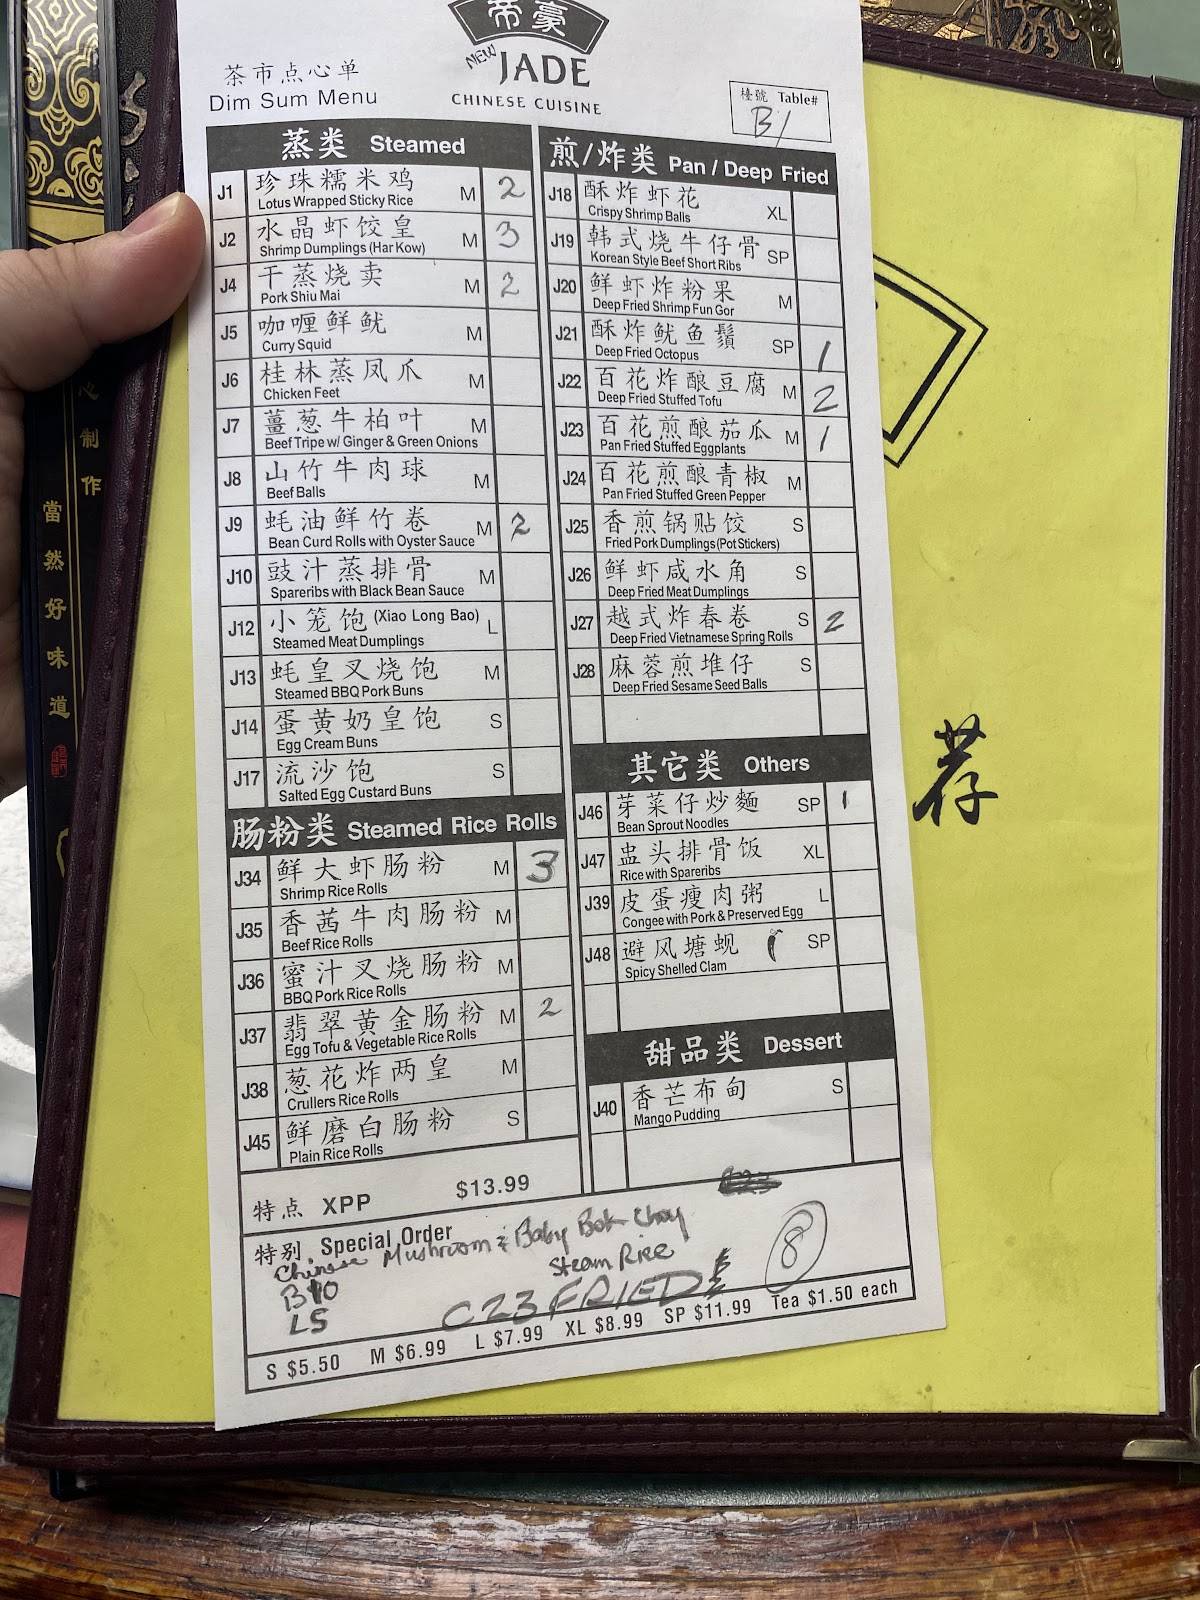 帝豪
NEW JADE
CHINESE CUISINE
茶市点心单
Dim Sum Menu
檯號 Table#
B1
蒸类 Steamed
J1 珍珠糯米鸡 M 2
Lotus Wrapped Sticky Rice
J2 水晶虾饺皇 M 3
Shrimp Dumplings (Har Kow)
J4 干蒸烧卖 M 2
Pork Shiu Mai
J5 咖喱鲜鱿 M
Curry Squid
J6 桂林蒸凤爪 M
Chicken Feet
J7 薑葱牛柏叶 M
Beef Tripe w/ Ginger & Green Onions
J8 山竹牛肉球 M
Beef Balls
J9 蚝油鲜竹卷 M 2
Bean Curd Rolls with Oyster Sauce
J10 豉汁蒸排骨 M
Spareribs with Black Bean Sauce
J12 小笼饱 (Xiao Long Bao) L
Steamed Meat Dumplings
J13 蚝皇叉烧饱 M
Steamed BBQ Pork Buns
J14 蛋黄奶皇饱 S
Egg Cream Buns
J17 流沙饱 S
Salted Egg Custard Buns
肠粉类 Steamed Rice Rolls
J34 鲜大虾肠粉 M 3
Shrimp Rice Rolls
J35 香茜牛肉肠粉 M
Beef Rice Rolls
J36 蜜汁叉烧肠粉 M
BBQ Pork Rice Rolls
J37 翡翠黄金肠粉 M 2
Egg Tofu & Vegetable Rice Rolls
J38 葱花炸两皇 M
Crullers Rice Rolls
J45 鲜磨白肠粉 S
Plain Rice Rolls
煎/炸类 Pan / Deep Fried
J18 酥炸虾花 XL
Crispy Shrimp Balls
J19 韩式烧牛仔骨 SP
Korean Style Beef Short Ribs
J20 鲜虾炸粉果 M
Deep Fried Shrimp Fun Gor
J21 酥炸鱿鱼鬚 SP 1
Deep Fried Octopus
J22 百花炸酿豆腐 M 2
Deep Fried Stuffed Tofu
J23 百花煎酿茄瓜 M 1
Pan Fried Stuffed Eggplants
J24 百花煎酿青椒 M
Pan Fried Stuffed Green Pepper
J25 香煎锅贴饺 S
Fried Pork Dumplings (Pot Stickers)
J26 鲜虾咸水角 S
Deep Fried Meat Dumplings
J27 越式炸春卷 S 2
Deep Fried Vietnamese Spring Rolls
J28 麻蓉煎堆仔 S
Deep Fried Sesame Seed Balls
其它类 Others
J46 芽菜仔炒麵 SP 1
Bean Sprout Noodles
J47 盅头排骨饭 XL
Rice with Spareribs
J39 皮蛋瘦肉粥 L
Congee with Pork & Preserved Egg
J48 避风塘蚬 SP
Spicy Shelled Clam
甜品类 Dessert
J40 香芒布甸 S
Mango Pudding
特点 XPP $13.99
特别 Special Order
Chinese Mushroom & Baby Bok Choy
Steam Rice
8
L5
C23 FRIED
S $5.50 M $6.99 L $7.99 XL $8.99 SP $11.99 Tea $1.50 each
荐
心制作
當然好味道